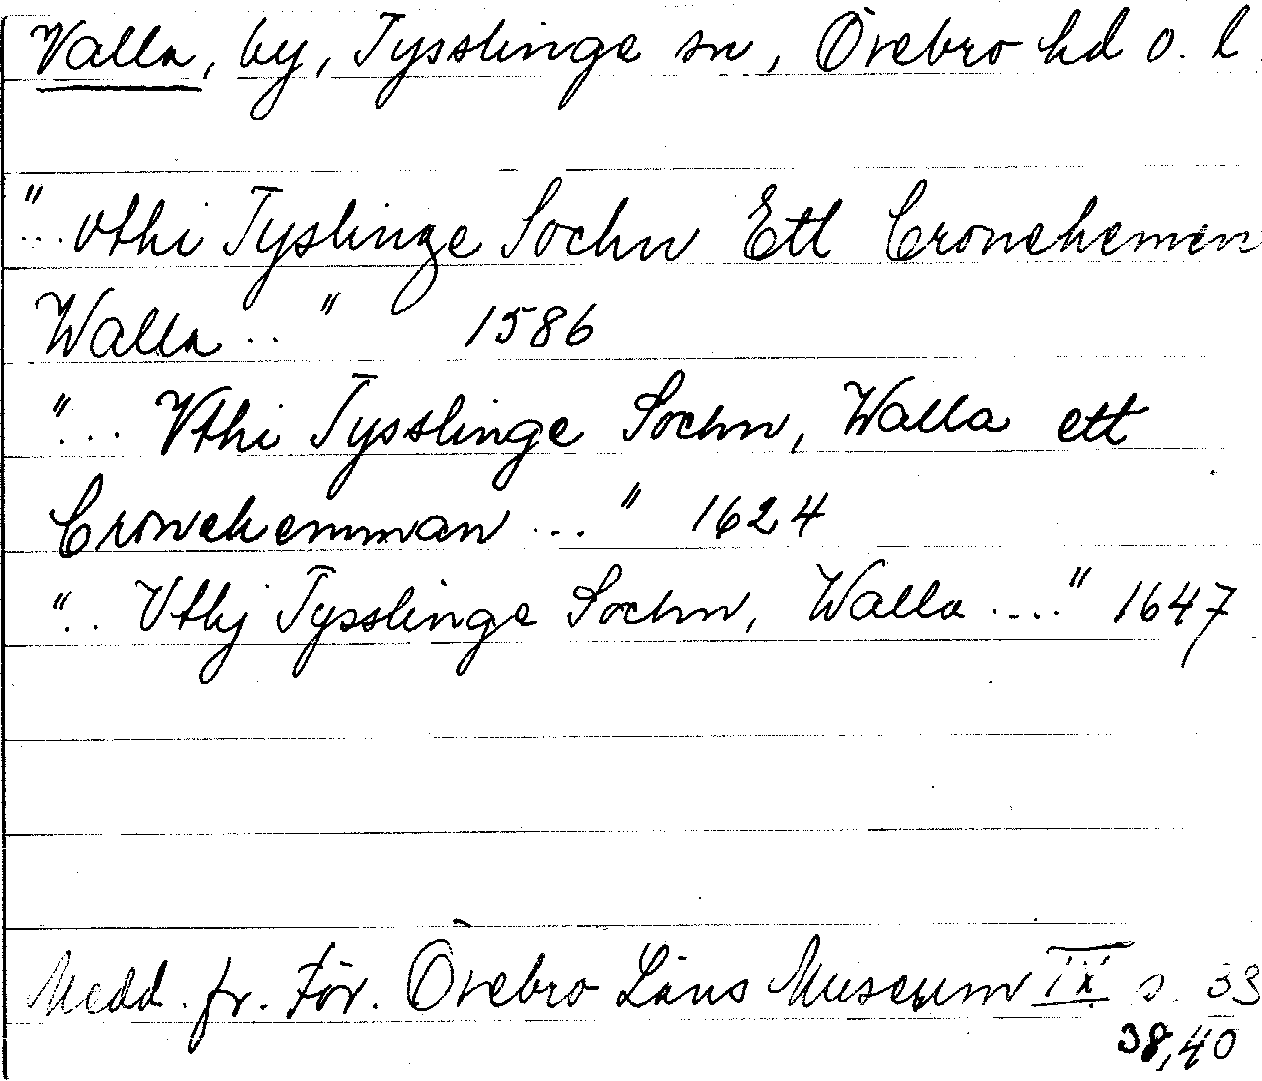 Valla, by, Tysslinge sn, Örebro hd o. l
"... vthi Tyslinge Sochn Ett Cronehemen
Walla .. " 1586
"... Vthi Tysslinge Sochn, Walla ett
Cronehemman ... " 1624
".. Vthj Tysslinge Sochn, Walla ...." 1647
Medd. fr. För. Örebro Läns Museum IX s. 33
38,40